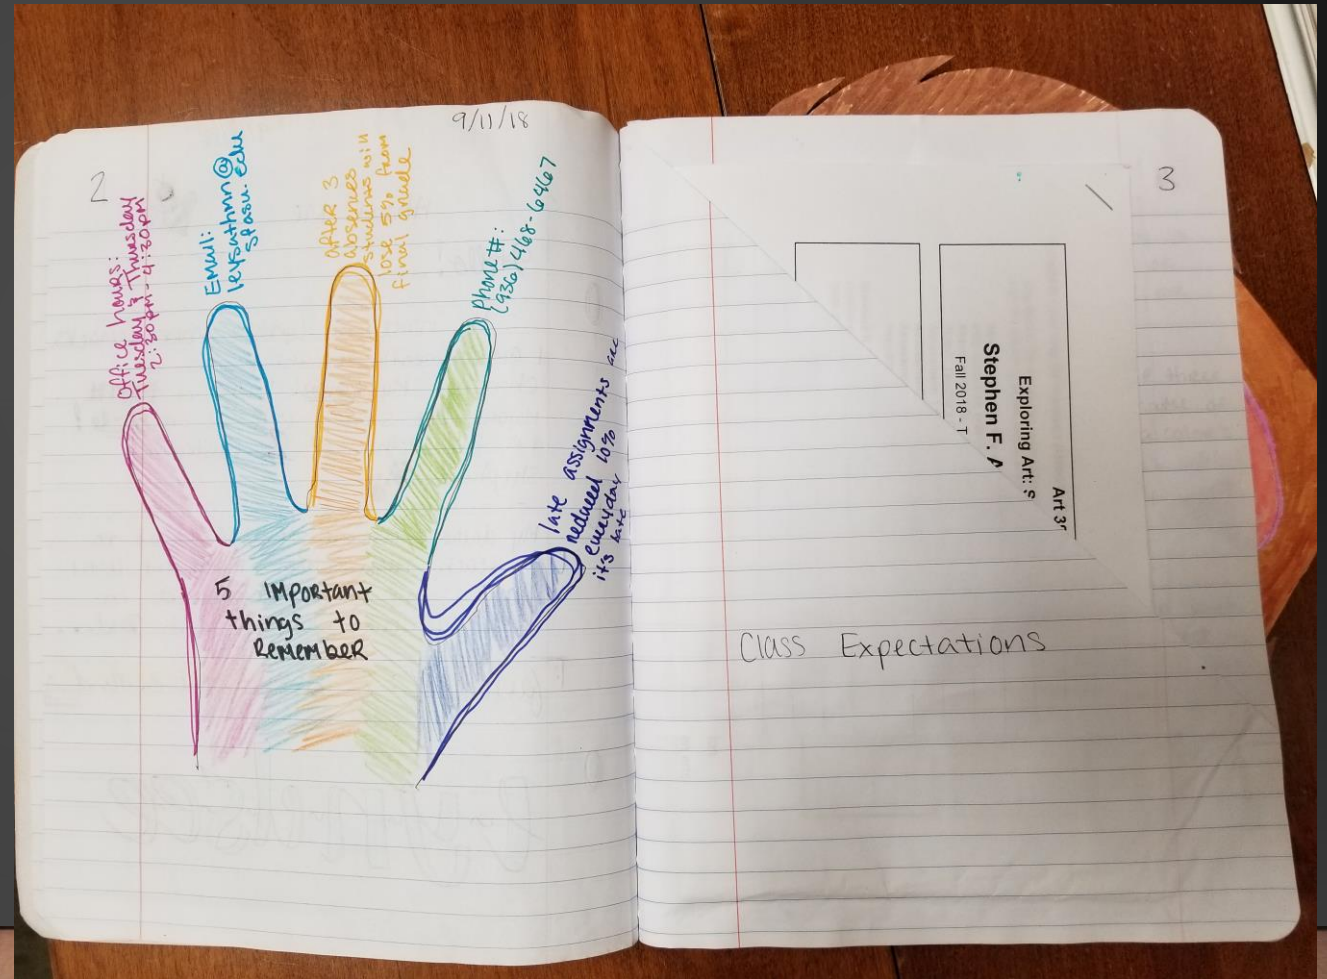 9/11/18
2
Office hours:
Tuesday & Thursday
2:30pm - 4:30pm
Email:
@
sfasu.edu
after 3
absences
students will
lose 5% from
final grade
Phone #:
(936) 468-6467
late assignments are
reduced 10%
everyday
its late
5 Important
things to
Remember
3
Art 3
Exploring Art: S
Stephen F. A
Fall 2018 - T
Class Expectations